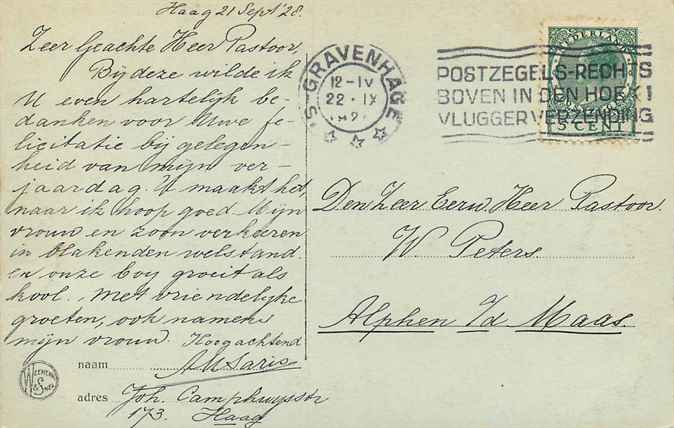 Haag 21 Sept '28.
Zeer Geachte Heer Pastoor,
Bij deze wilde ik
U even hartelijk be-
danken voor Uwe fe-
licitatie bij gelegen-
heid van mijn ver-
jaardag. U maakt het,
naar ik hoop goed. Mijn
vrouw en zoon verkeeren
in blakenden welstand
en onze boy groeit als
kool. Met vriendelijke
groeten, ook namens
mijn vrouw. Hoogachtend
naam
adres Joh. Camphuysstr
173. Haag
'S-GRAVENHAGE
12-IV
22.IX
POSTZEGELS-RECHTS
BOVEN IN DEN HOEK!
VLUGGER VERZENDING
NEDERLAND
5 CENT
Den Zeer Eerw. Heer Pastoor
W. Peters
Alphen I/d Maas.